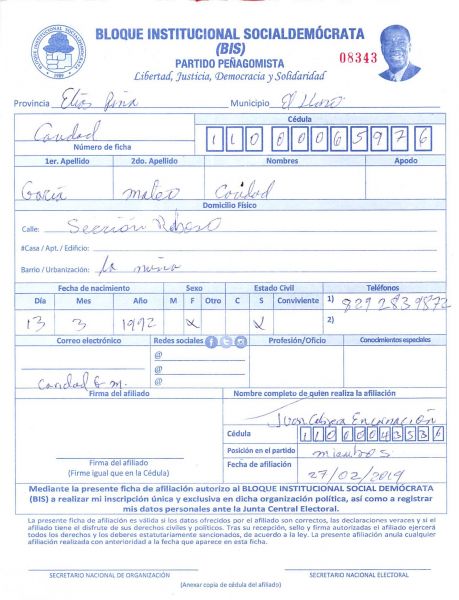 BLOQUE INSTITUCIONAL SOCIALDEMÓCRATA
(BIS)
PARTIDO PEÑAGOMISTA
Libertad, Justicia, Democracia y Solidaridad
08343
Provincia Elías Piña Municipio El Llano
Caridad
Número de ficha
Cédula
1.er. Apellido 2do. Apellido Nombres Apodo
García Mateo Caridad
Domicilio Físico
Calle: Sección
#Casa / Apt. / Edificio:
Barrio / Urbanización: La mina
Fecha de nacimiento Sexo Estado Civil Teléfonos
Día Mes Año M F Otro C S Conviviente 1) 829 2839872
13 3 1992 X X 2)
Correo electrónico Redes sociales Profesión/Oficio Conocimientos especiales
@
@
@
Caridad G m.
Firma del afiliado
Nombre completo de quien realiza la afiliación
Juan Cabrera Encarnación
Cédula 11000043536
Posición en el partido miembros
Fecha de afiliación 27/02/2019
Firma del afiliado
(Firme igual que en la Cédula)
Mediante la presente ficha de afiliación autorizo al BLOQUE INSTITUCIONAL SOCIAL DEMÓCRATA
(BIS) a realizar mi inscripción única y exclusiva en dicha organización política, así como a registrar
mis datos personales ante la Junta Central Electoral.
La presente ficha de afiliación es válida si los datos ofrecidos por el afiliado son correctos, las declaraciones veraces y si el
afiliado tiene el disfrute de sus derechos civiles y políticos. Tras su recepción, sello y firma autorizadas el afiliado ejercerá
todos los derechos y los deberes estatutariamente sancionados, de acuerdo a la ley. La presente afiliación anula cualquier
afiliación realizada con anterioridad a la fecha que aparece en esta ficha.
SECRETARIO NACIONAL DE ORGANIZACIÓN SECRETARIO NACIONAL ELECTORAL
(Anexar copia de cédula del afiliado)